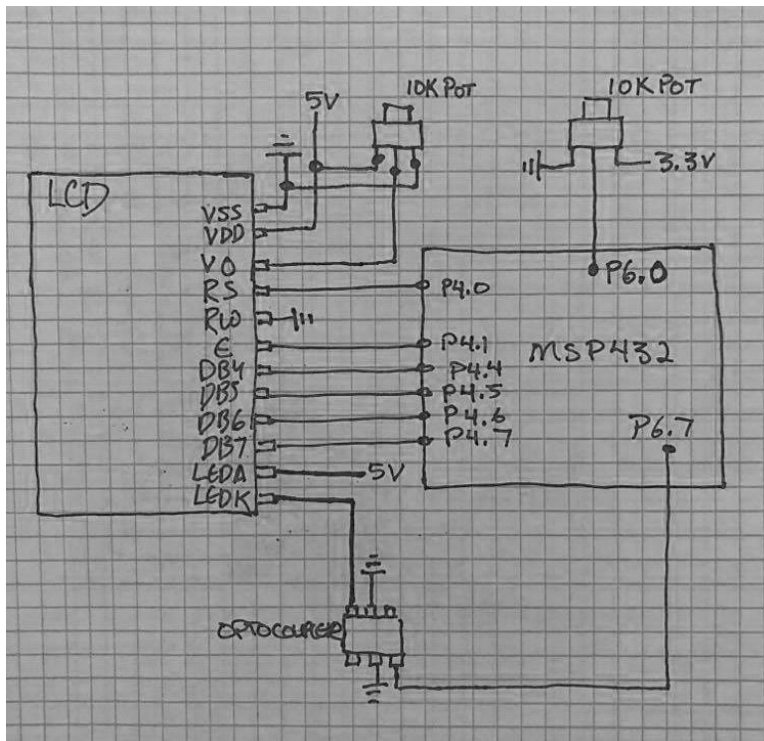 10K POT
10K POT
5V
3.3V
LCD
VSS
VDD
VO
RS
RW
E
DB4
DB5
DB6
DB7
LEDA
LEDK
5V
P6.0
P4.0
P4.1
P4.4
P4.5
P4.6
P4.7
MSP432
P6.7
OPTOCOUPLER